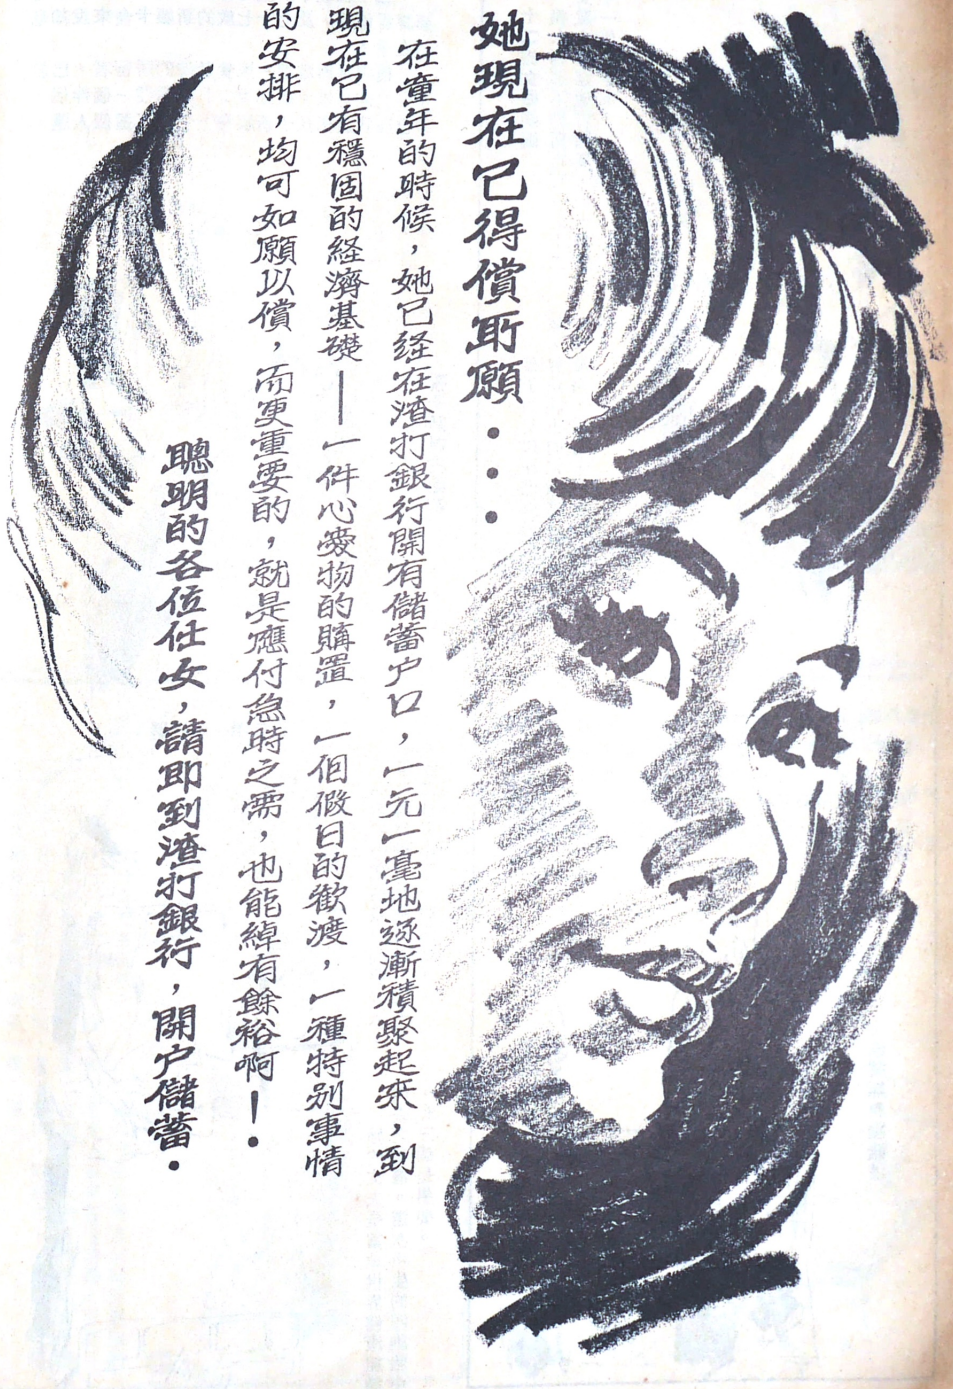 她現在已得償所願・・・
在童年的時候，她已経在渣打銀行開有儲蓄户口，一元一毫地逐漸積聚起来，到
現在已有穩固的経濟基礎——一件心愛物的購置，一個假日的歡渡，一種特别事情
的安排，均可如願以償，而更重要的，就是應付急時之需，也能綽有餘裕啊！・
聰明的各位仕女，請即到渣打銀行，開户儲蓄・